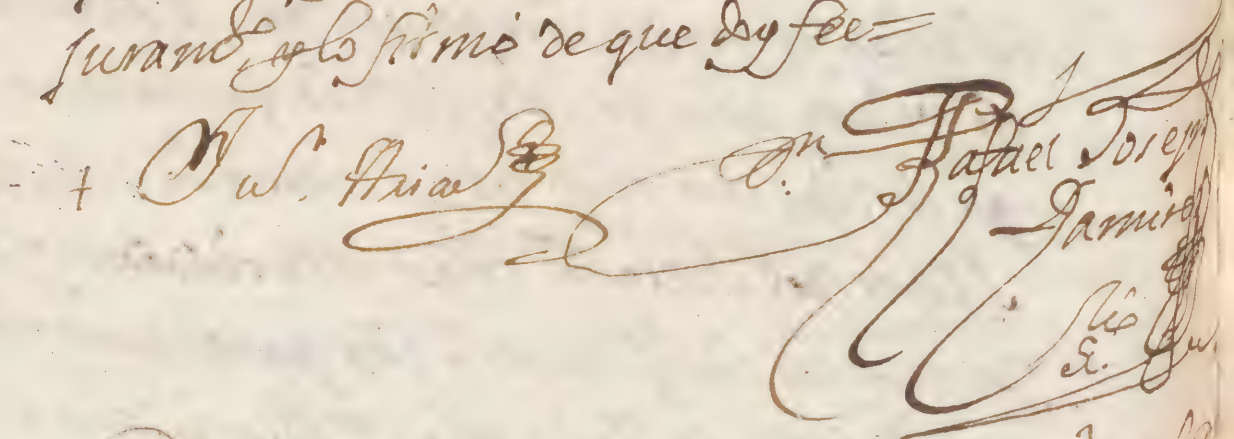 juramto, y lo firmó de que doy fee=
Arias
Dn Rafael Joseph
Ramires